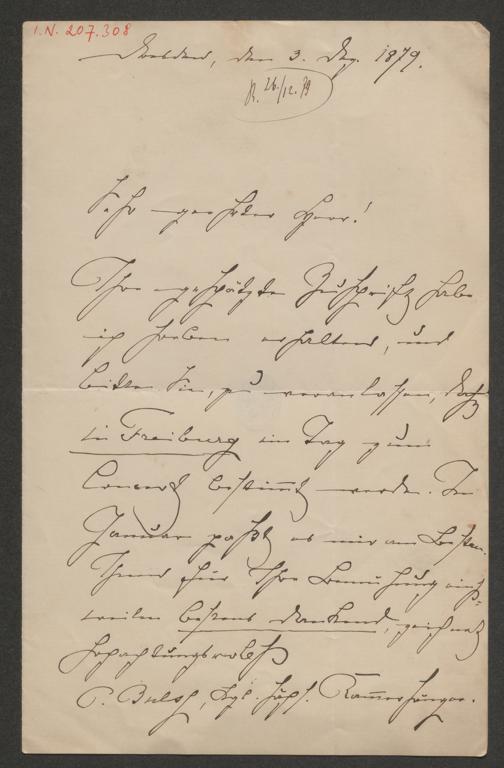 I.N. 207.308
Dresden, den 3. Dez. 1879.
R. 26./12. 79
Sehr geehrter Herr!
Ihre geschätzte Zuschrift habe
ich soeben erhalten, und
bitte Sie, zu veranlassen, daß
in Freiburg ein Tag zum
Concert bestimmt werde. Im
Januar paßt es mir am Besten.
Ihnen für Ihre Bemühung einst-
weilen bestens dankend, zeichnet
hochachtungsvollst
P. Bulß, Kgl. sächs. Kammersänger.